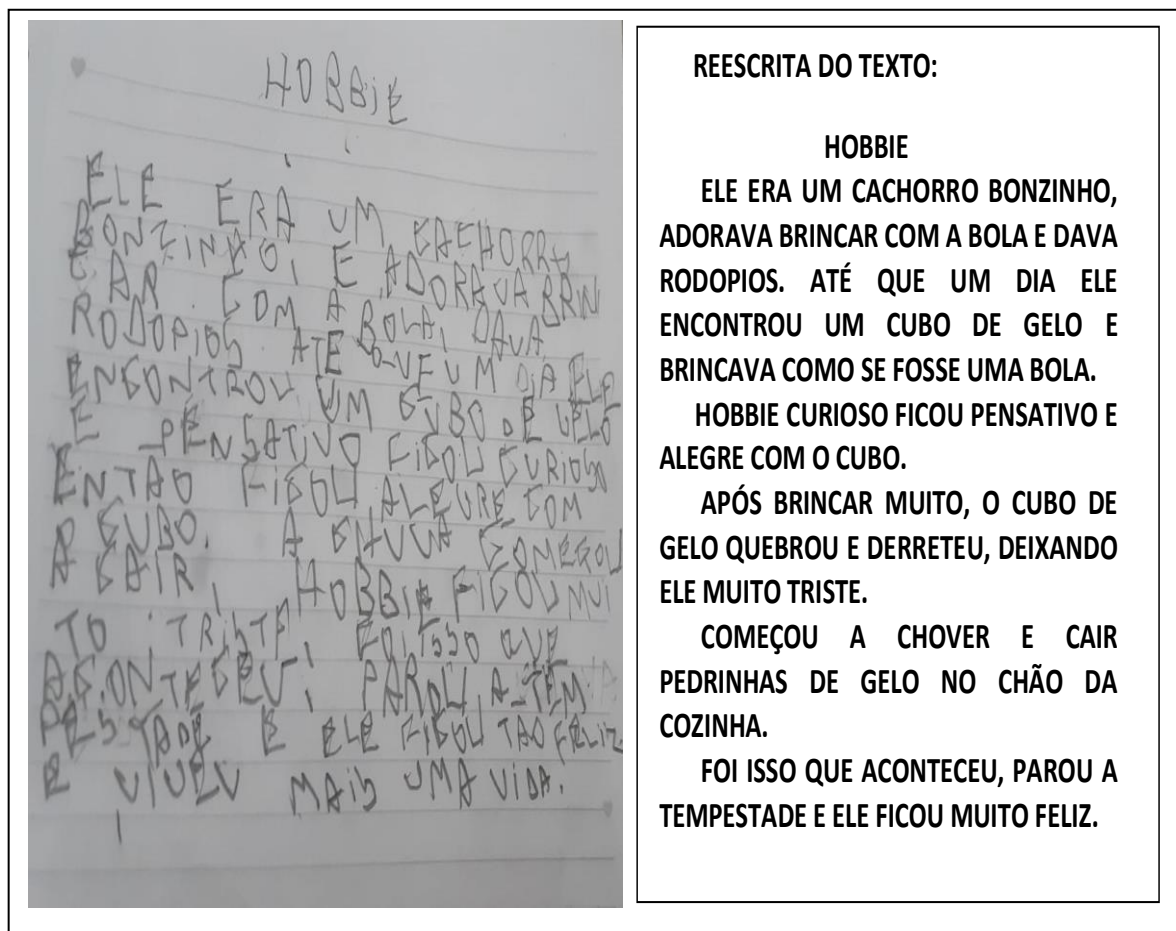 HOBBIE
ELE ERA UM CACHORRO
BONZINHO, E ADORAVA BRIN
CAR COM A BOLA, DAVA
RODOPIOS. ATE QUE UM DIA ELE
ENCONTROU UM CUBO DE GELO
E PENSATIVO FICOU CURIOSO
ENTÃO FICOU ALEGRE COM
O CUBO. A CHUVA COMEÇOU
A CAIR, HOBBIE FICOU MUI
TO TRISTE, FOI ISSO QUE
ACONTECEU, PAROU A TEM
PESTADE E ELE FICOU TAO FELIZ
E VIVEU MAIS UMA VIDA.
REESCRITA DO TEXTO:
HOBBIE
ELE ERA UM CACHORRO BONZINHO,
ADORAVA BRINCAR COM A BOLA E DAVA
RODOPIOS. ATÉ QUE UM DIA ELE
ENCONTROU UM CUBO DE GELO E
BRINCAVA COMO SE FOSSE UMA BOLA.
HOBBIE CURIOSO FICOU PENSATIVO E
ALEGRE COM O CUBO.
APÓS BRINCAR MUITO, O CUBO DE
GELO QUEBROU E DERRETEU, DEIXANDO
ELE MUITO TRISTE.
COMEÇOU A CHOVER E CAIR
PEDRINHAS DE GELO NO CHÃO DA
COZINHA.
FOI ISSO QUE ACONTECEU, PAROU A
TEMPESTADE E ELE FICOU MUITO FELIZ.